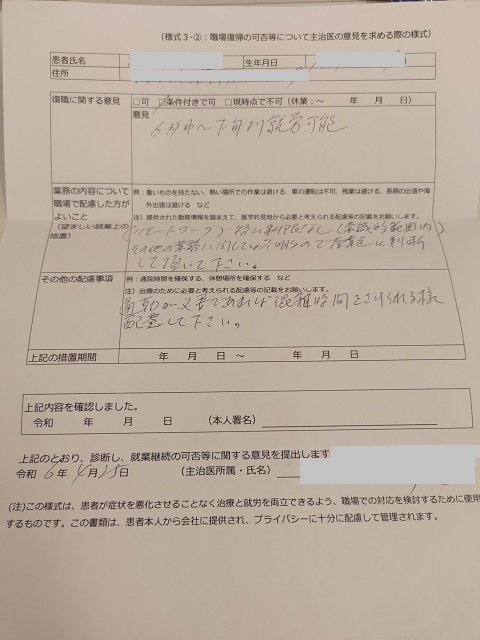 (様式3-②：職場復帰の可否等について主治医の意見を求める際の様式)
患者氏名 生年月日
住所
復職に関する意見 □可 □条件付きで可 □現時点で不可（休業：～ 年 月 日）
意見
6月中～下旬より就労可能
業務の内容について
職場で配慮した方が
よいこと
(望ましい就業上の
措置)
例：重いものを持たない、暑い場所での作業は避ける、車の運転は不可、残業は避ける、長期の出張や海
外出張は避ける など
注）提供された勤務情報を踏まえて、医学的見地から必要と考えられる配慮等の記載をお願いします。
(リモートワーク)：特に制限なし(常識的範囲内)
その他の業務に関しては不明なので産業医に判断
して頂いて下さい。
その他の配慮事項
例：通院時間を確保する、休憩場所を確保する など
注）治療のために必要と考えられる配慮等の記載をお願いします。
通勤が必要であれば混雑時間をさけられる様
配慮して下さい。
上記の措置期間 年 月 日 ～ 年 月 日
上記内容を確認しました。
令和 年 月 日 (本人署名)
上記のとおり、診断し、就業継続の可否等に関する意見を提出します
令和 6年 4月25日 (主治医所属・氏名)
(注)この様式は、患者が症状を悪化させることなく治療と就労を両立できるよう、職場での対応を検討するために使用
するものです。この書類は、患者本人から会社に提供され、プライバシーに十分に配慮して管理されます。